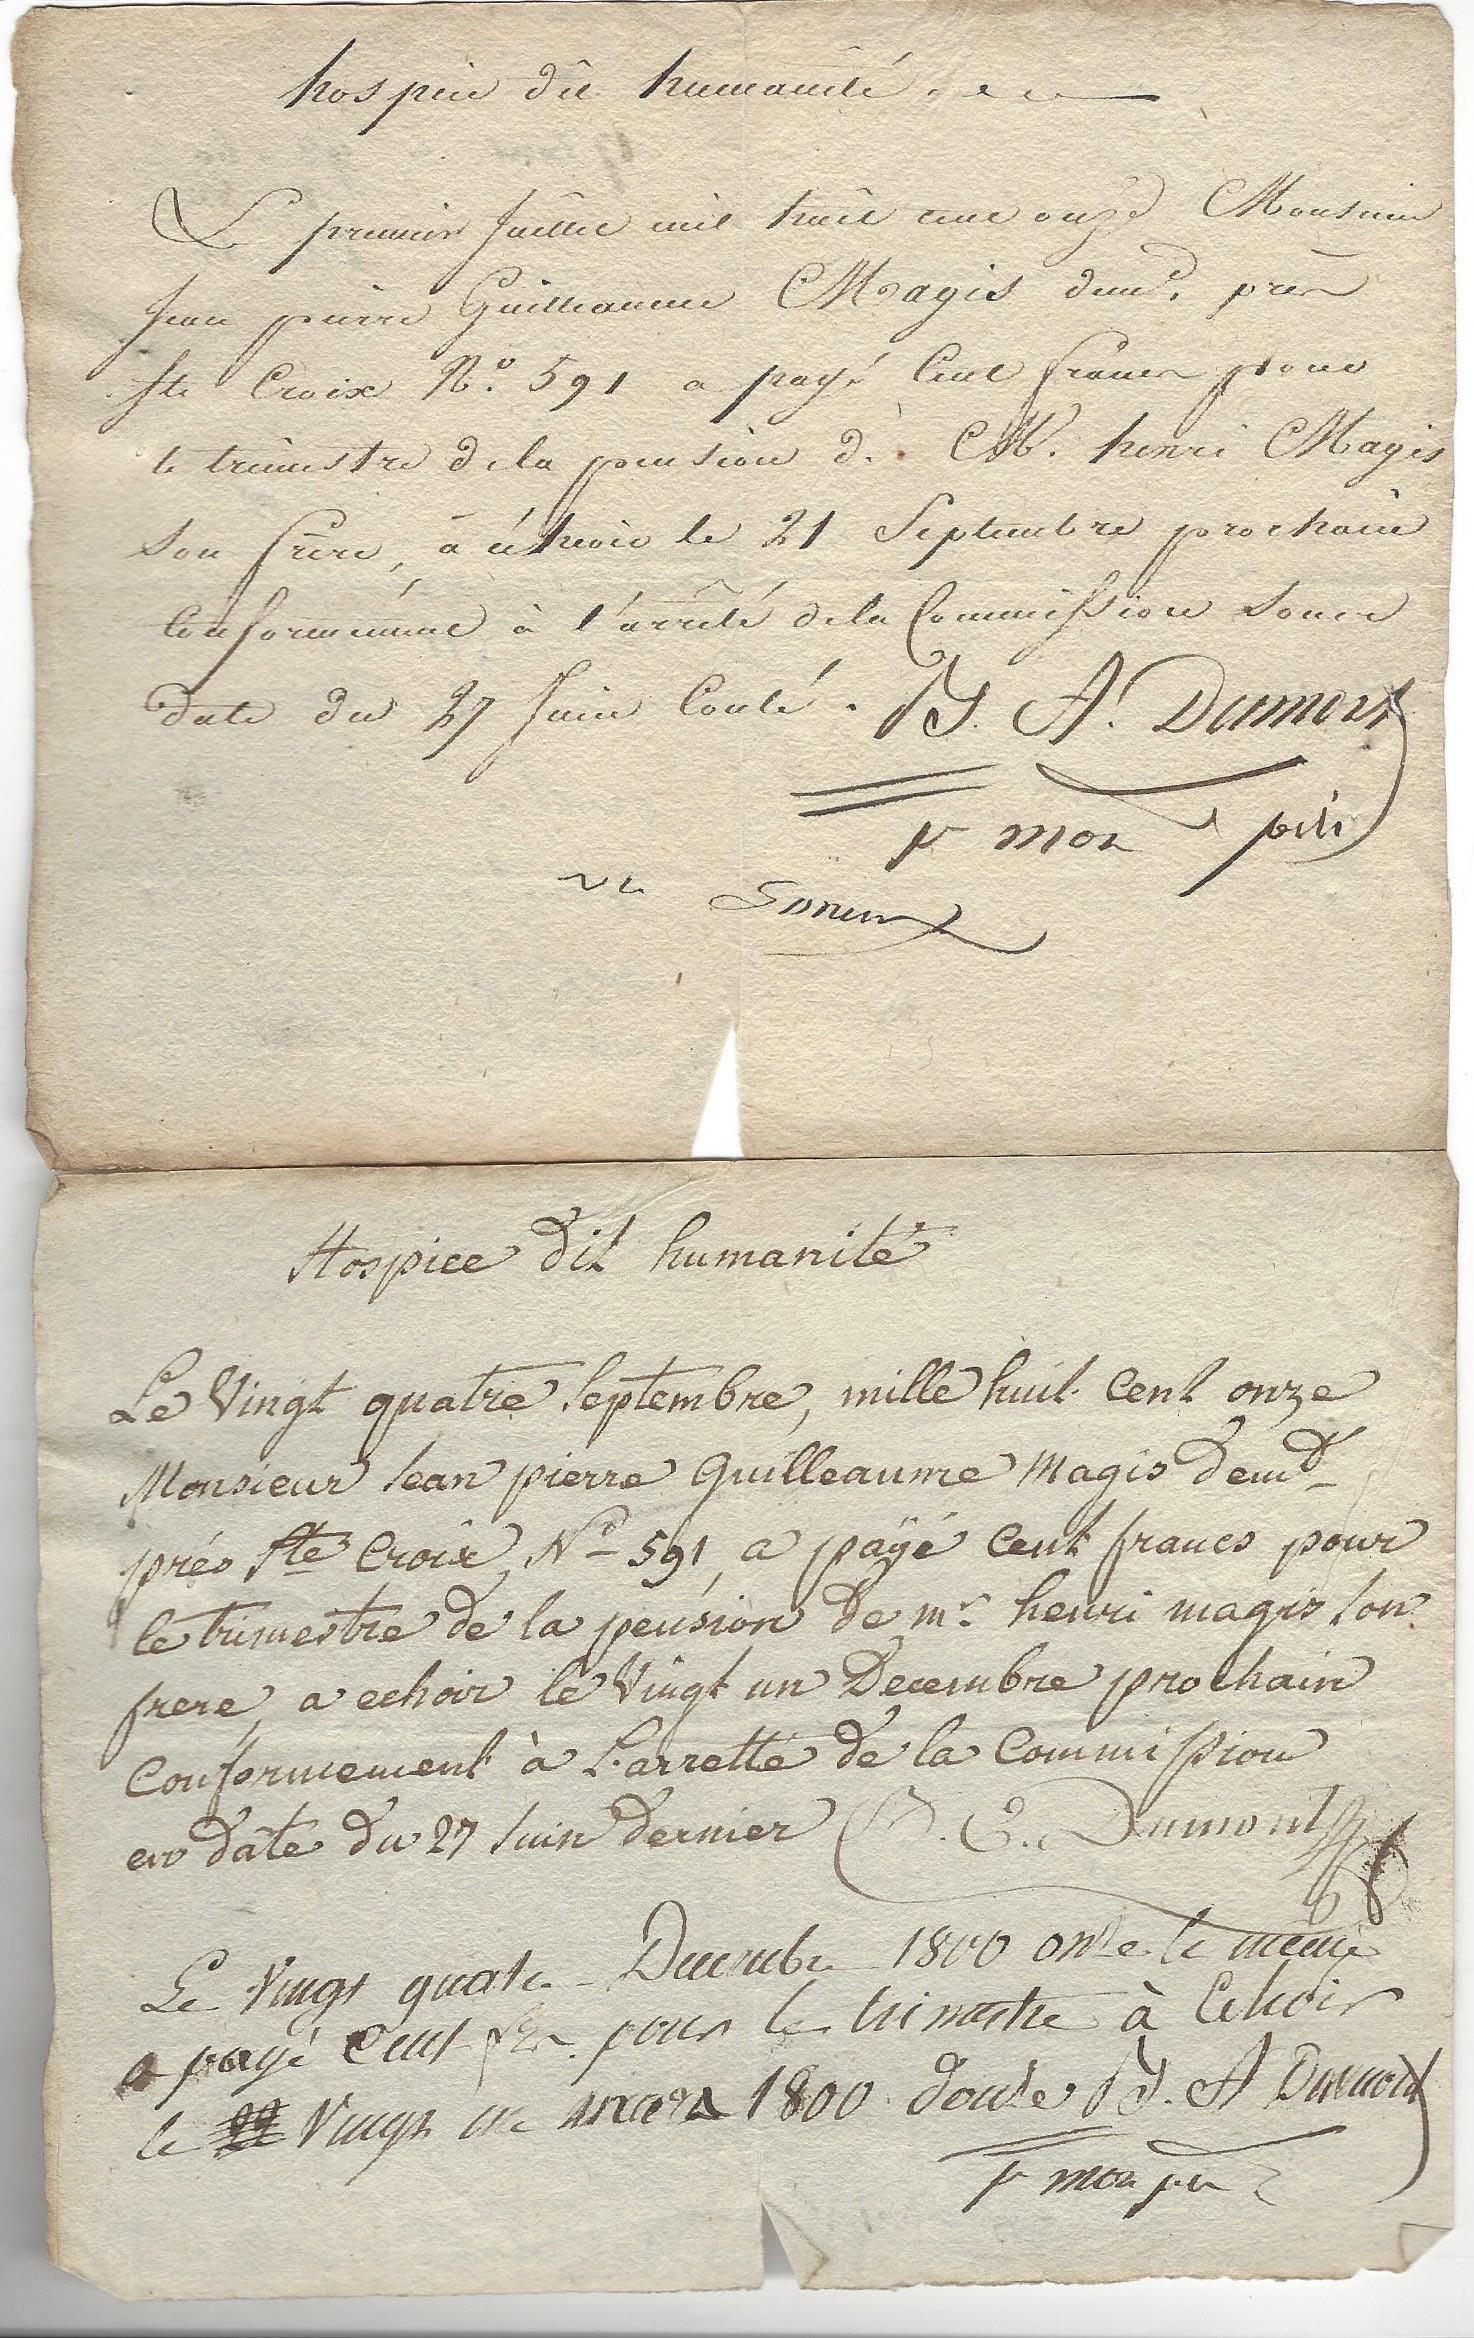 hospice dit humanité.
Le premier Juillet mil huit cent onze Monsieur
Jean pierre Guilleaume Magis dem.d près
Ste Croix N.o 591 a payé Cent francs pour
le trimestre de la pension de M. henri Magis
son frère, à échoir le 21 Septembre prochain
Conformément à l'arrêté de la Commission sous
date du 27 Juin Coulé. J. A. Dumont
pr mon père
Hospice dit humanité
Le Vingt quatre Septembre, mille huit Cent onze
Monsieur Jean pierre Guilleaume Magis demd
prés Ste Croix, No 591, a paÿé Cent francs pour
le trimestre de la pension de mr henri magis son
frere, a echoir le Vingt un Decembre prochain
Conformement à L'arretté de la Commission
en date du 27 Juin dernier D. E. Dumont
Le Vingt quatre Decembre 1800 onze le même
a payé Cent frs pour le trimestre à Echoir
le 22 Vingt un mars 1800 douze J. A Dumont
pr mon père